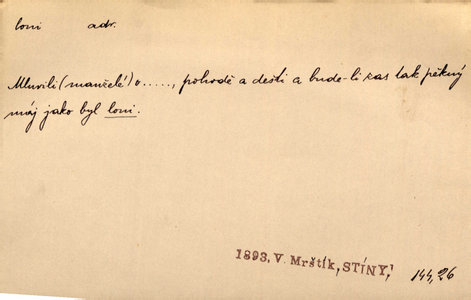 loni adv.
Mluvili (manželé) o ....., pohodě a dešti a bude-li zas tak pěkný
máj jako byl loni.
1893, V. Mrštík, STÍNY,¹
144,26